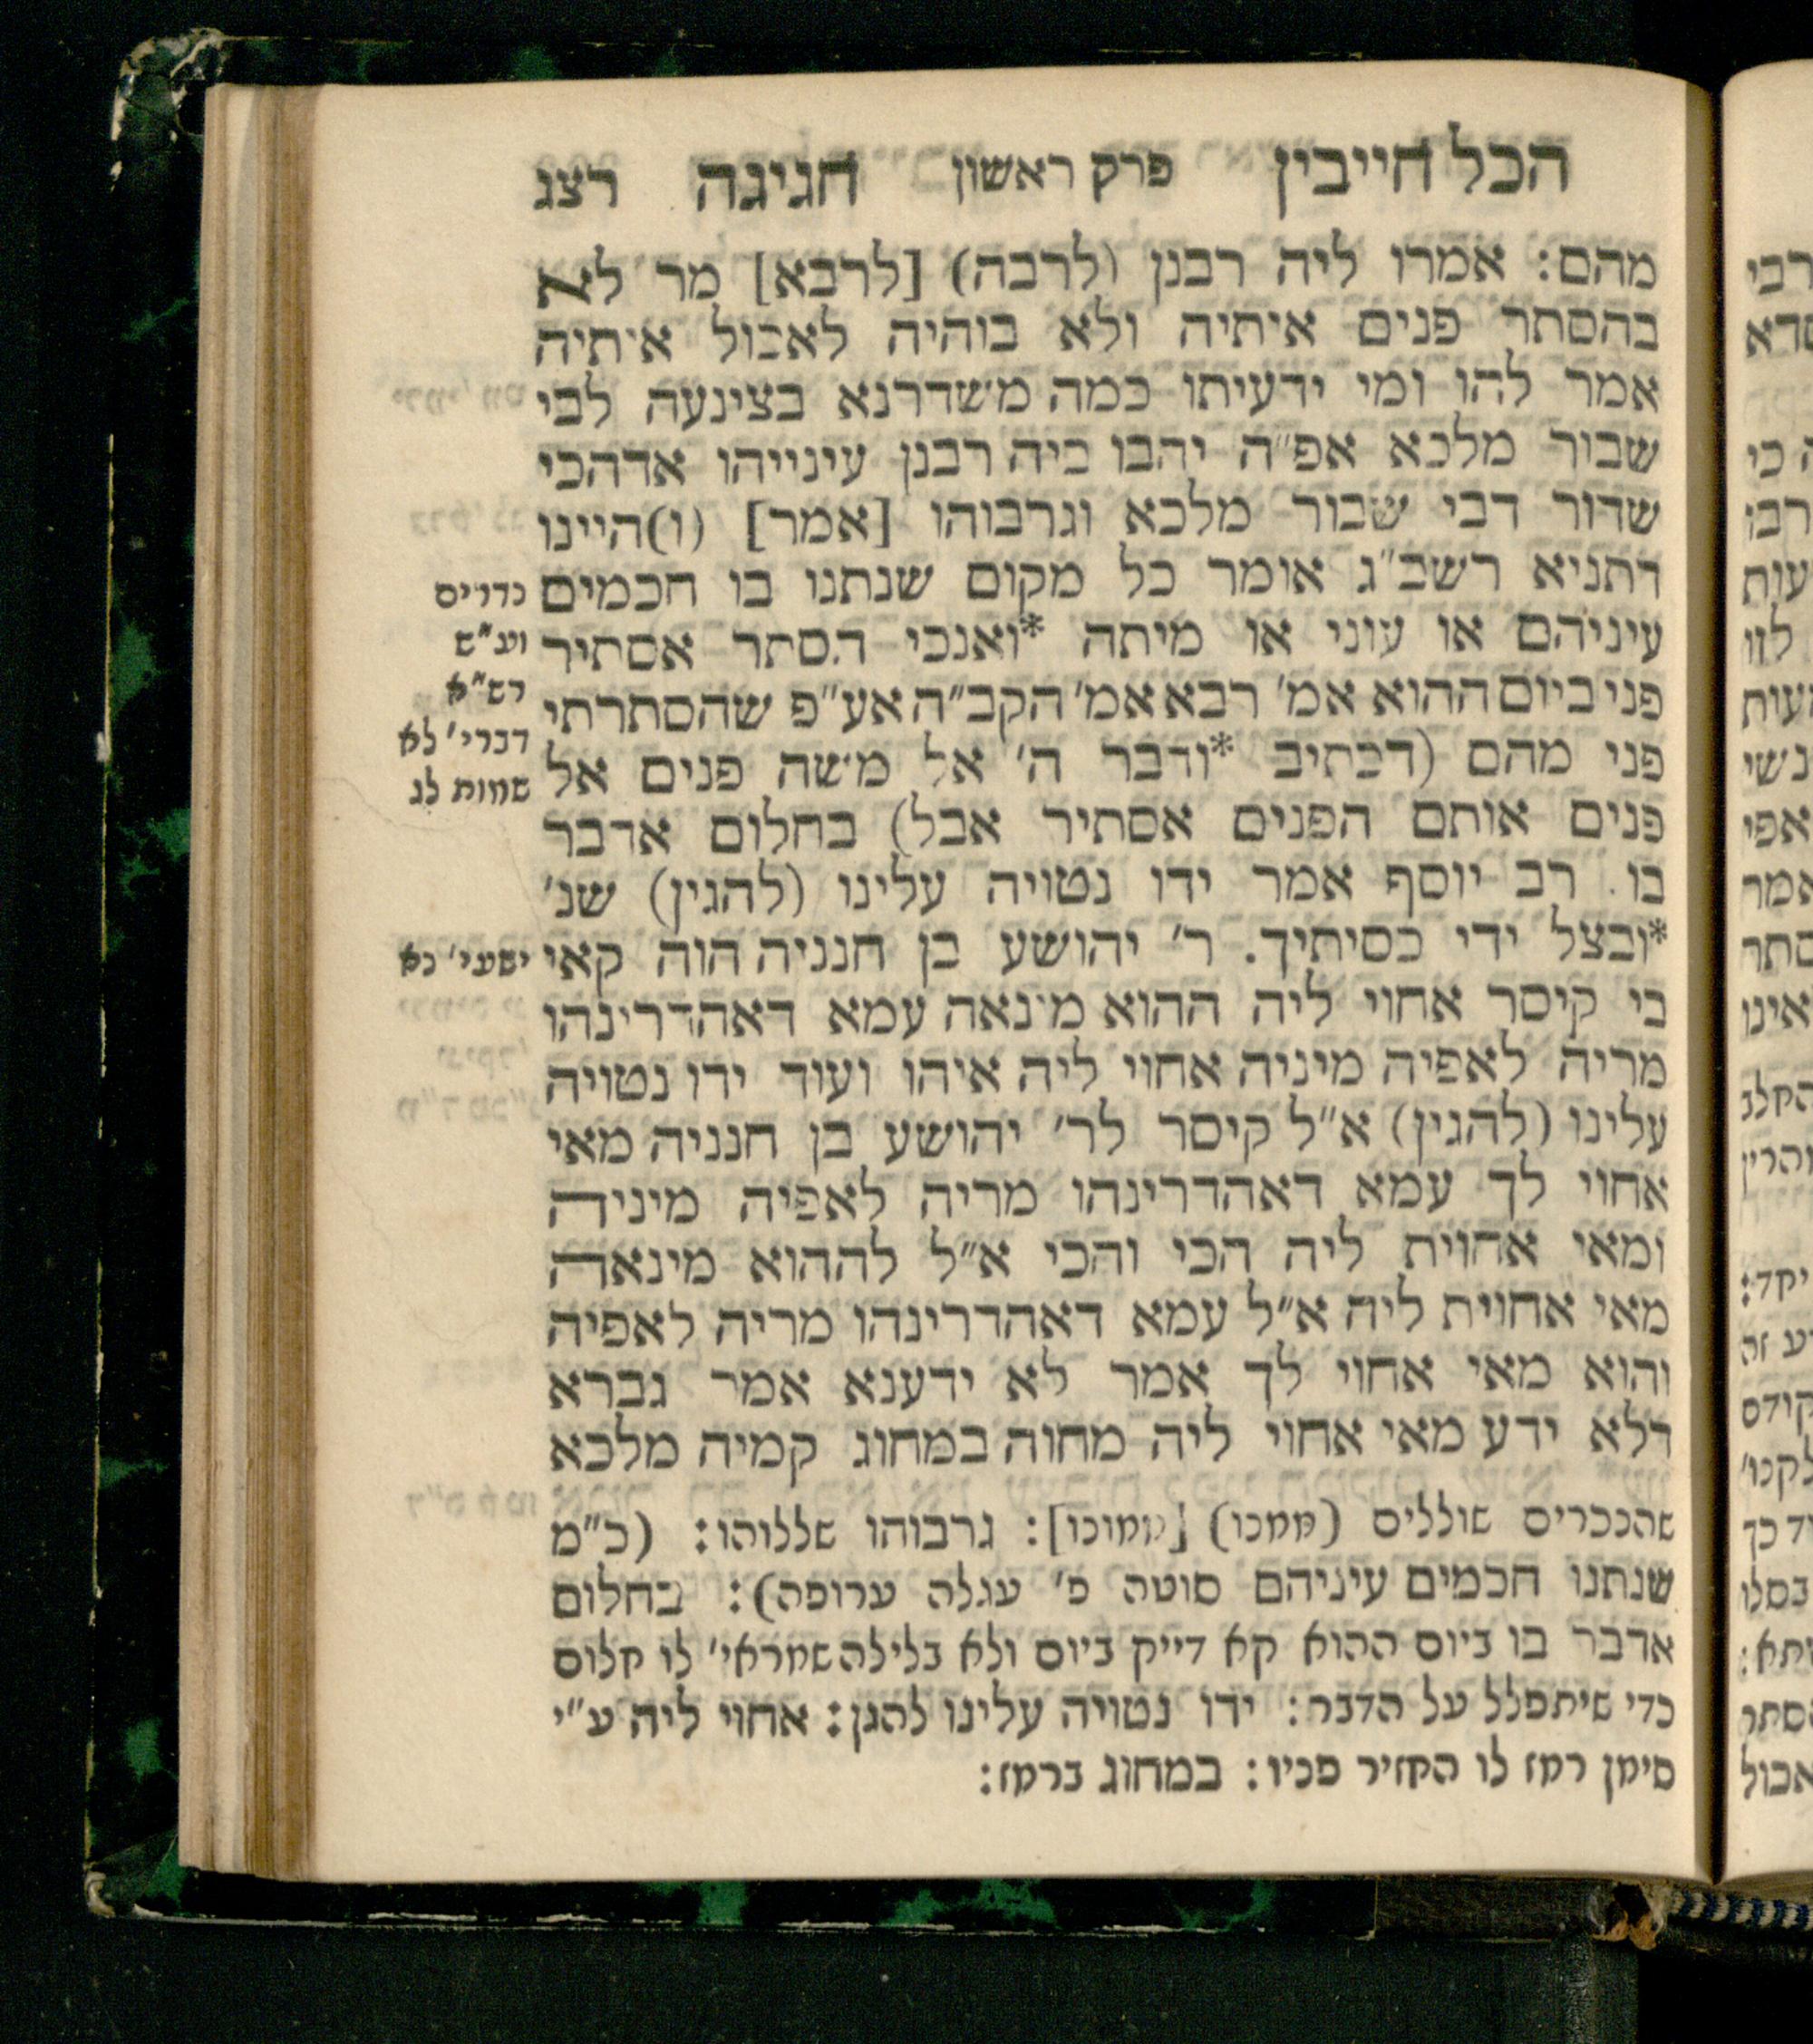 הכל חייבין פרק ראשון חגיגה רצג
מהם: אמרו ליה רבנן (לרבה) [לרבא] מר לא
בהסתר פנים איתיה ולא בוהיה לאכול איתיה
אמר להו ומי ידעיתו כמה משדרנא בצינעה לבי
שבור מלכא אפ"ה יהבו ביה רבנן עינייהו אדהכי
שדור דבי שבור מלכא וגרבוהו [אמר] (ו)היינו
דתניא רשב"ג אומר כל מקום שנתנו בו חכמים
עיניהם או עוני או מיתה *ואנכי הסתר אסתיר
פני ביום ההוא אמ' רבא אמ' הקב"ה אע"פ שהסתרתי
פני מהם (דכתיב *ודבר ה' אל משה פנים אל
פנים אותם הפנים אסתיר אבל) בחלום אדבר
בו. רב יוסף אמר ידו נטויה עלינו (להגין) שנ'
*ובצל ידי כסיתיך. ר' יהושע בן חנניה הוה קאי
בי קיסר אחוי ליה ההוא מינאה עמא דאהדרינהו
מריה לאפיה מיניה אחוי ליה איהו ועוד ידו נטויה
עלינו (להגין) א"ל קיסר לר' יהושע בן חנניה מאי
אחוי לך עמא דאהדרינהו מריה לאפיה מיניה
ומאי אחוית ליה הכי והכי א"ל לההוא מינאה
מאי אחוית ליה א"ל עמא דאהדרינהו מריה לאפיה
והוא מאי אחוי לך אמר לא ידענא אמר גברא
דלא ידע מאי אחוי ליה מחוה במחוג קמיה מלכא
נדרים
וע"ש
רש"א
דברי' לא
שמות לג
ישעי' נא
שהנכרים שוללים (ממנו) [ממונו]: גרבוהו שללוהו: (כ"מ
שנתנו חכמים עיניהם סוטה פ' עגלה ערופה): בחלום
אדבר בו ביום ההוא קא דייק ביום ולא בלילה שמראי' לו חלום
כדי שיתפלל על הדבר: ידו נטויה עלינו להגן: אחוי ליה ע"י
סימן רמז לו החזיר פניו: במחוג ברמז: